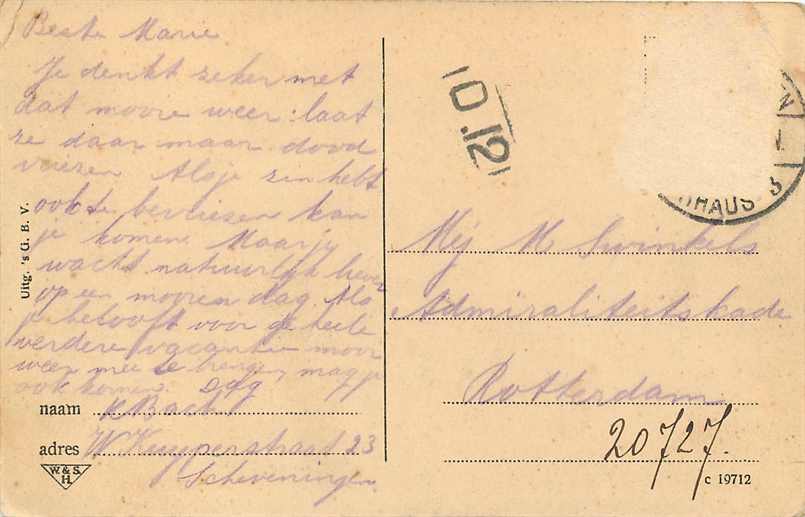 Beste Marie
Je denkt zeker met
dat mooie weer: laat
ze daar maar dood
vriezen Als je zin hebt
ook te bevriezen kan
je komen. Maar je
wacht natuurlijk liever
op een mooien dag. Als
je belooft voor de heele
verdere vacantie mooi
weer mee te brengen, mag je
ook komen. Dag
naam K Bach
adres W Kuyperstraat 23
Scheveningen
Uitg. 's G. B. V.
W. & S.
H.
10.12
N
RHAUS 3
Mej M Swinkels
Admiraliteitskade
Rotterdam
20727.
c 19712